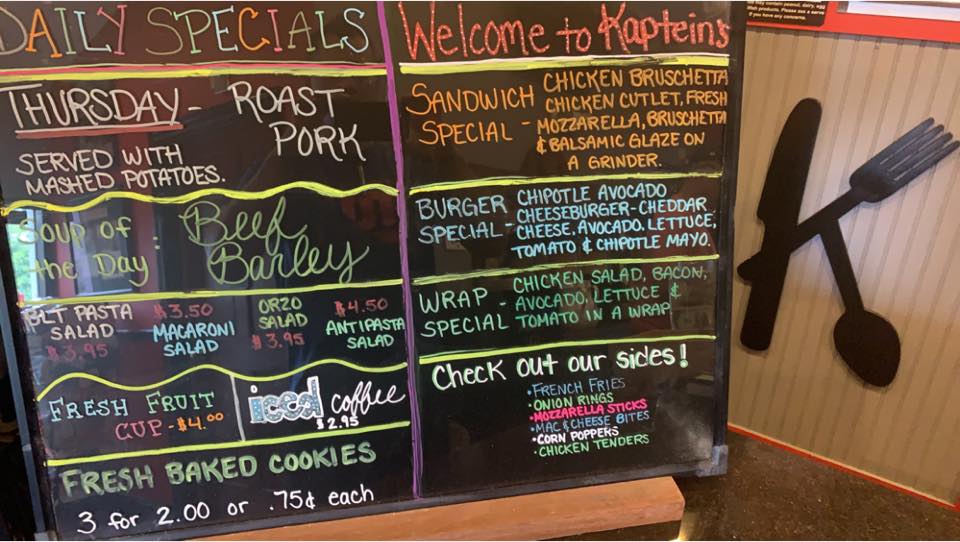 DAILY SPECIALS
THURSDAY - ROAST
PORK
SERVED WITH
MASHED POTATOES.
Soup of : Beef
the Day Barley
BLT PASTA
SALAD
$3.95
$3.50
MACARONI
SALAD
ORZO
SALAD
$3.95
$4.50
ANTIPASTA
SALAD
FRESH FRUIT
CUP - $4.00
iced coffee
$2.95
FRESH BAKED COOKIES
3 for 2.00 or .75¢ each
Welcome to Kaptein's
SANDWICH
SPECIAL -
CHICKEN BRUSCHETTA
CHICKEN CUTLET, FRESH
MOZZARELLA, BRUSCHETTA
& BALSAMIC GLAZE ON
A GRINDER.
BURGER
SPECIAL -
CHIPOTLE AVOCADO
CHEESEBURGER - CHEDDAR
CHEESE, AVOCADO, LETTUCE,
TOMATO & CHIPOTLE MAYO.
WRAP -
SPECIAL
CHICKEN SALAD, BACON,
AVOCADO, LETTUCE &
TOMATO IN A WRAP
Check out our sides!
• FRENCH FRIES
• ONION RINGS
• MOZZARELLA STICKS
• MAC & CHEESE BITES
• CORN POPPERS
• CHICKEN TENDERS
may contain peanut, dairy, egg
products. Please ask a serve
if you have any concerns.